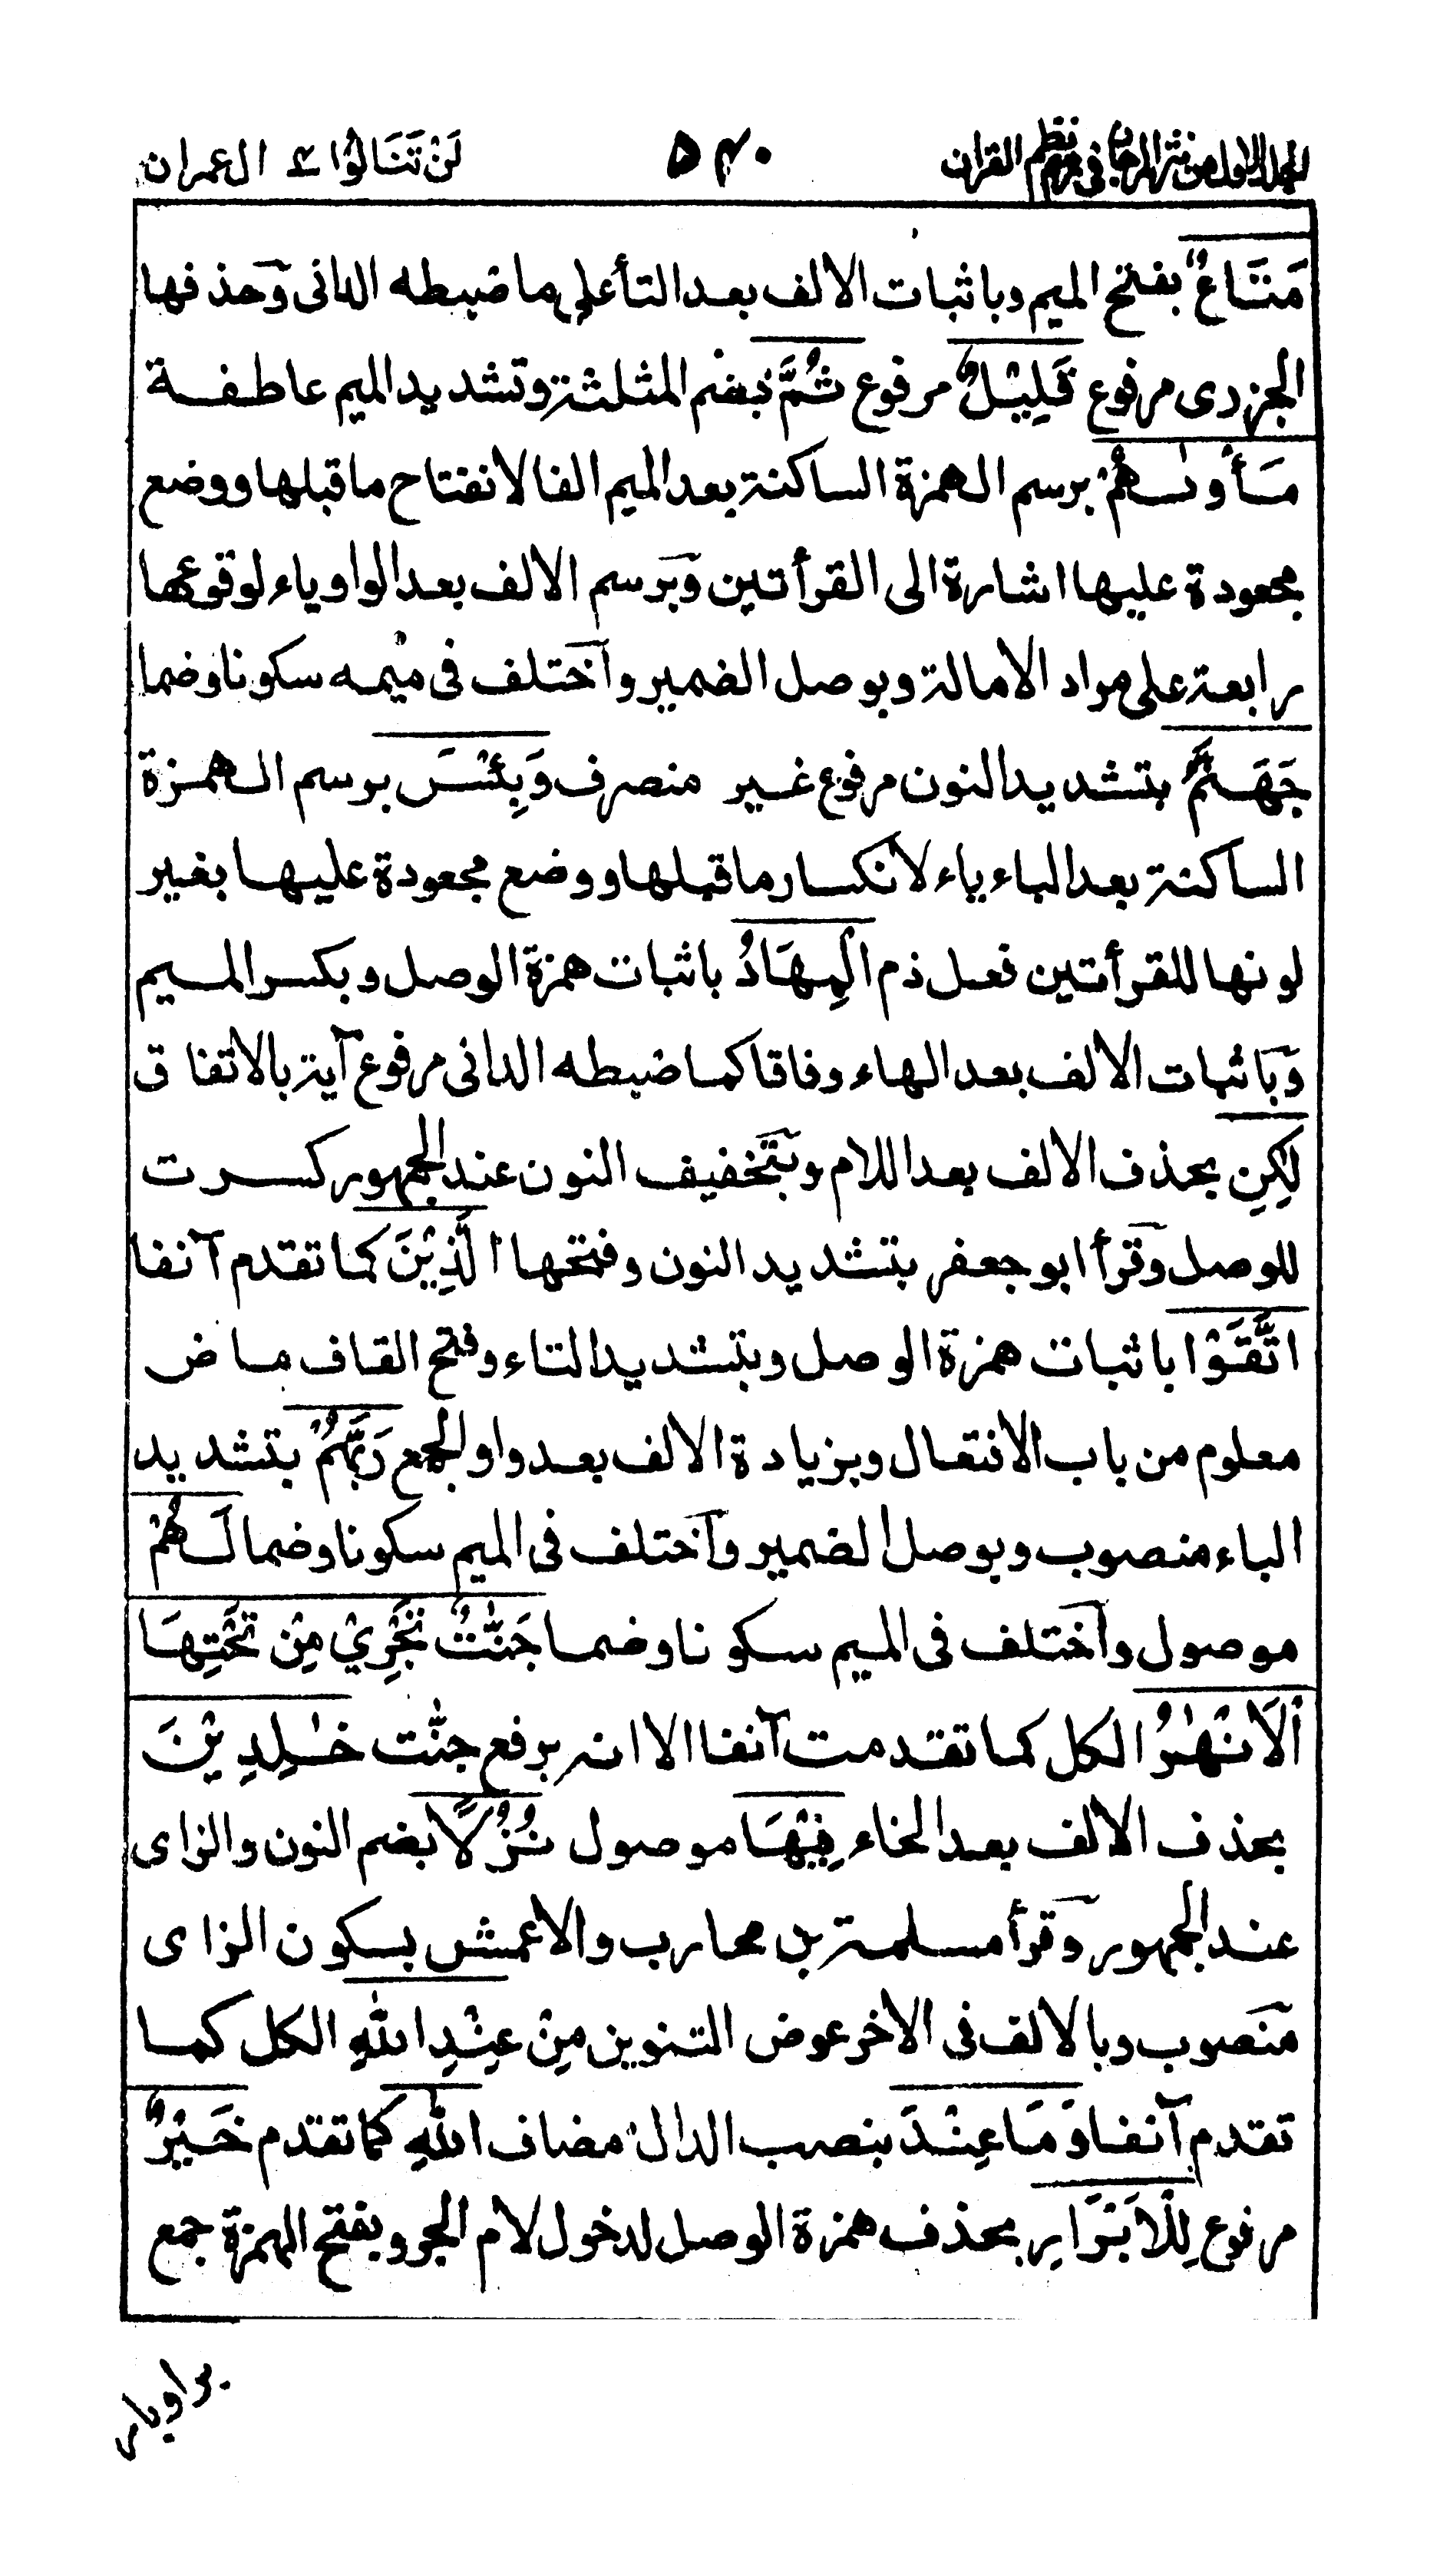 المجلد الاول من نثر المرجان في رسم نظم القران ۵۴۰ لَنْ تَنَالُوْا ٤ ال عمران
مَتَاعٌ بفتح الميم وباثبات الالف بعد التأ على ما ضبطه الدانى وحذفها
الجزرى مرفوع قَلِيْلٌ مرفوع ثُمَّ بضم المثلثة وتشديد الميم عاطفة
مَأْوٰىهُمْ برسم الهمزة الساكنة بعد الميم الفا لانفتاح ما قبلها ووضع
مجعودة عليها اشارة الى القرأتين وبرسم الالف بعد الواو ياء لوقوعها
رابعة على مراد الامالة وبوصل الضمير واختلف فى ميمه سكونا وضما
جَهَنَّمُ بتشديد النون مرفوع غير منصرف وَبِئْسَ برسم الهمزة
الساكنة بعد الباء ياء لانكسار ما قبلها ووضع مجعودة عليها بغير
لونها للقرأتين فعل ذم الْمِهَادُ باثبات همزة الوصل وبكسر الميم
وباثبات الالف بعد الهاء وفاقا كما ضبطه الدانى مرفوع آية بالاتفاق
لٰكِنِ بحذف الالف بعد اللام وبتخفيف النون عند الجمهور كسرت
للوصل وقرأ ابو جعفر بتشديد النون وفتحها الَّذِيْنَ كما تقدم آنفا
اتَّقَوْا باثبات همزة الوصل وبتشديد التاء وفتح القاف ماض
معلوم من باب الافتعال وبزيادة الالف بعد واو الجمع رَبَّهُمْ بتشديد
الباء منصوب وبوصل الضمير واختلف فى الميم سكونا وضما لَهُمْ
موصول واختلف فى الميم سكونا وضما جَنّٰتٌ تَجْرِيْ مِنْ تَحْتِهَا
الْاَنْهٰرُ الكل كما تقدمت آنفا الا انه برفع جنّٰت خٰلِدِيْنَ
بحذف الالف بعد الخاء فِيْهَا موصول نُزُلًا بضم النون والزاى
عند الجمهور وقرأ مسلمة بن محارب والاعمش بسكون الزاى
منصوب وبالالف فى الاخر عوض التنوين مِنْ عِنْدِ اللّٰهِ الكل كما
تقدم آنفا وَمَا عِنْدَ بنصب الدال مضاف اللّٰهِ كما تقدم خَيْرٌ
مرفوع لِلْاَبْرَارِ بحذف همزة الوصل لدخول لام الجر وبفتح الهمزة جمع